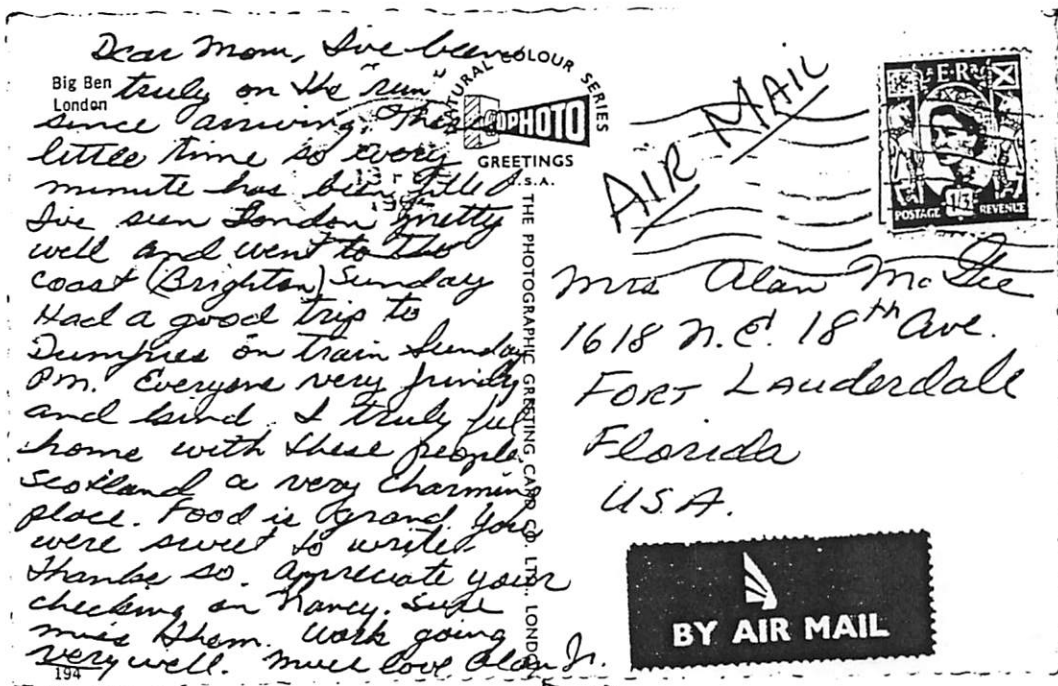 Dear Mom, I've been
truly on the "run"
since arriving. The
little time so every
minute has been filled
I've seen London pretty
well and went to the
coast (Brighton) Sunday
Had a good trip to
Dumfries on train Sunday
P.M. Everyone very frindly
and kind. I truly feel
home with these people.
Scotland a very charming
place. Food is grand. You
were sweet to write.
Thanks so. Appreciate your
checking on Nancy. Sure
miss them. Work going
very well. Much love Alan Jr.
Big Ben
London
NATURAL COLOUR SERIES
PHOTO
GREETINGS
U.S.A.
THE PHOTOGRAPHIC GREETING CARD CO. LTD., LONDON
194
AIR MAIL
E R
POSTAGE 1/3 REVENUE
Mrs Alan McGee
1618 N.E. 18th Ave.
FORT LAuderdale
Florida
U.S.A.
BY AIR MAIL